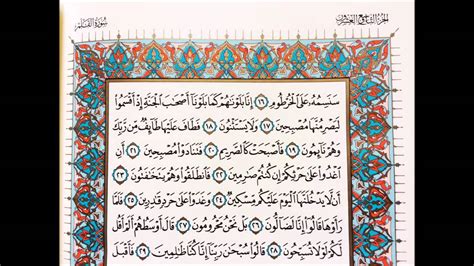 الجزء التاسع والعشرون
سورة القلم
سَنَسِمُهُ عَلَى الْخُرْطُومِ ١٦ إِنَّا بَلَوْنَاهُمْ كَمَا بَلَوْنَا أَصْحَابَ الْجَنَّةِ إِذْ أَقْسَمُوا
لَيَصْرِمُنَّهَا مُصْبِحِينَ ١٧ وَلَا يَسْتَثْنُونَ ١٨ فَطَافَ عَلَيْهَا طَائِفٌ مِّن رَّبِّكَ
وَهُمْ نَائِمُونَ ١٩ فَأَصْبَحَتْ كَالصَّرِيمِ ٢٠ فَتَنَادَوْا مُصْبِحِينَ ٢١ أَنِ
اغْدُوا عَلَى حَرْثِكُمْ إِن كُنتُمْ صَارِمِينَ ٢٢ فَانطَلَقُوا وَهُمْ يَتَخَافَتُونَ ٢٣
أَن لَّا يَدْخُلَنَّهَا الْيَوْمَ عَلَيْكُم مِّسْكِينٌ ٢٤ وَغَدَوْا عَلَى حَرْدٍ قَادِرِينَ ٢٥ فَلَمَّا
رَأَوْهَا قَالُوا إِنَّا لَضَالُّونَ ٢٦ بَلْ نَحْنُ مَحْرُومُونَ ٢٧ قَالَ أَوْسَطُهُمْ أَلَمْ أَقُل
لَّكُمْ لَوْلَا تُسَبِّحُونَ ٢٨ قَالُوا سُبْحَانَ رَبِّنَا إِنَّا كُنَّا ظَالِمِينَ ٢٩ فَأَقْبَلَ